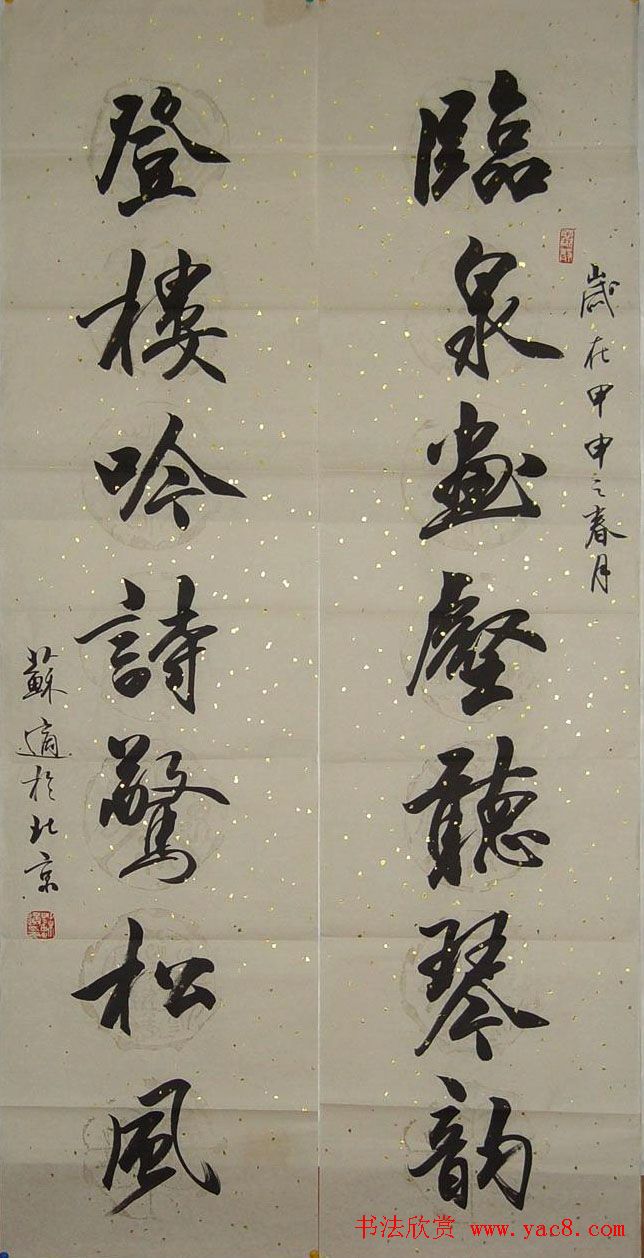 臨泉畫壑聽琴韵
歲在甲申之春月
登樓吟詩驚松風
蘇適於北京
书法欣赏 www.yac8.com